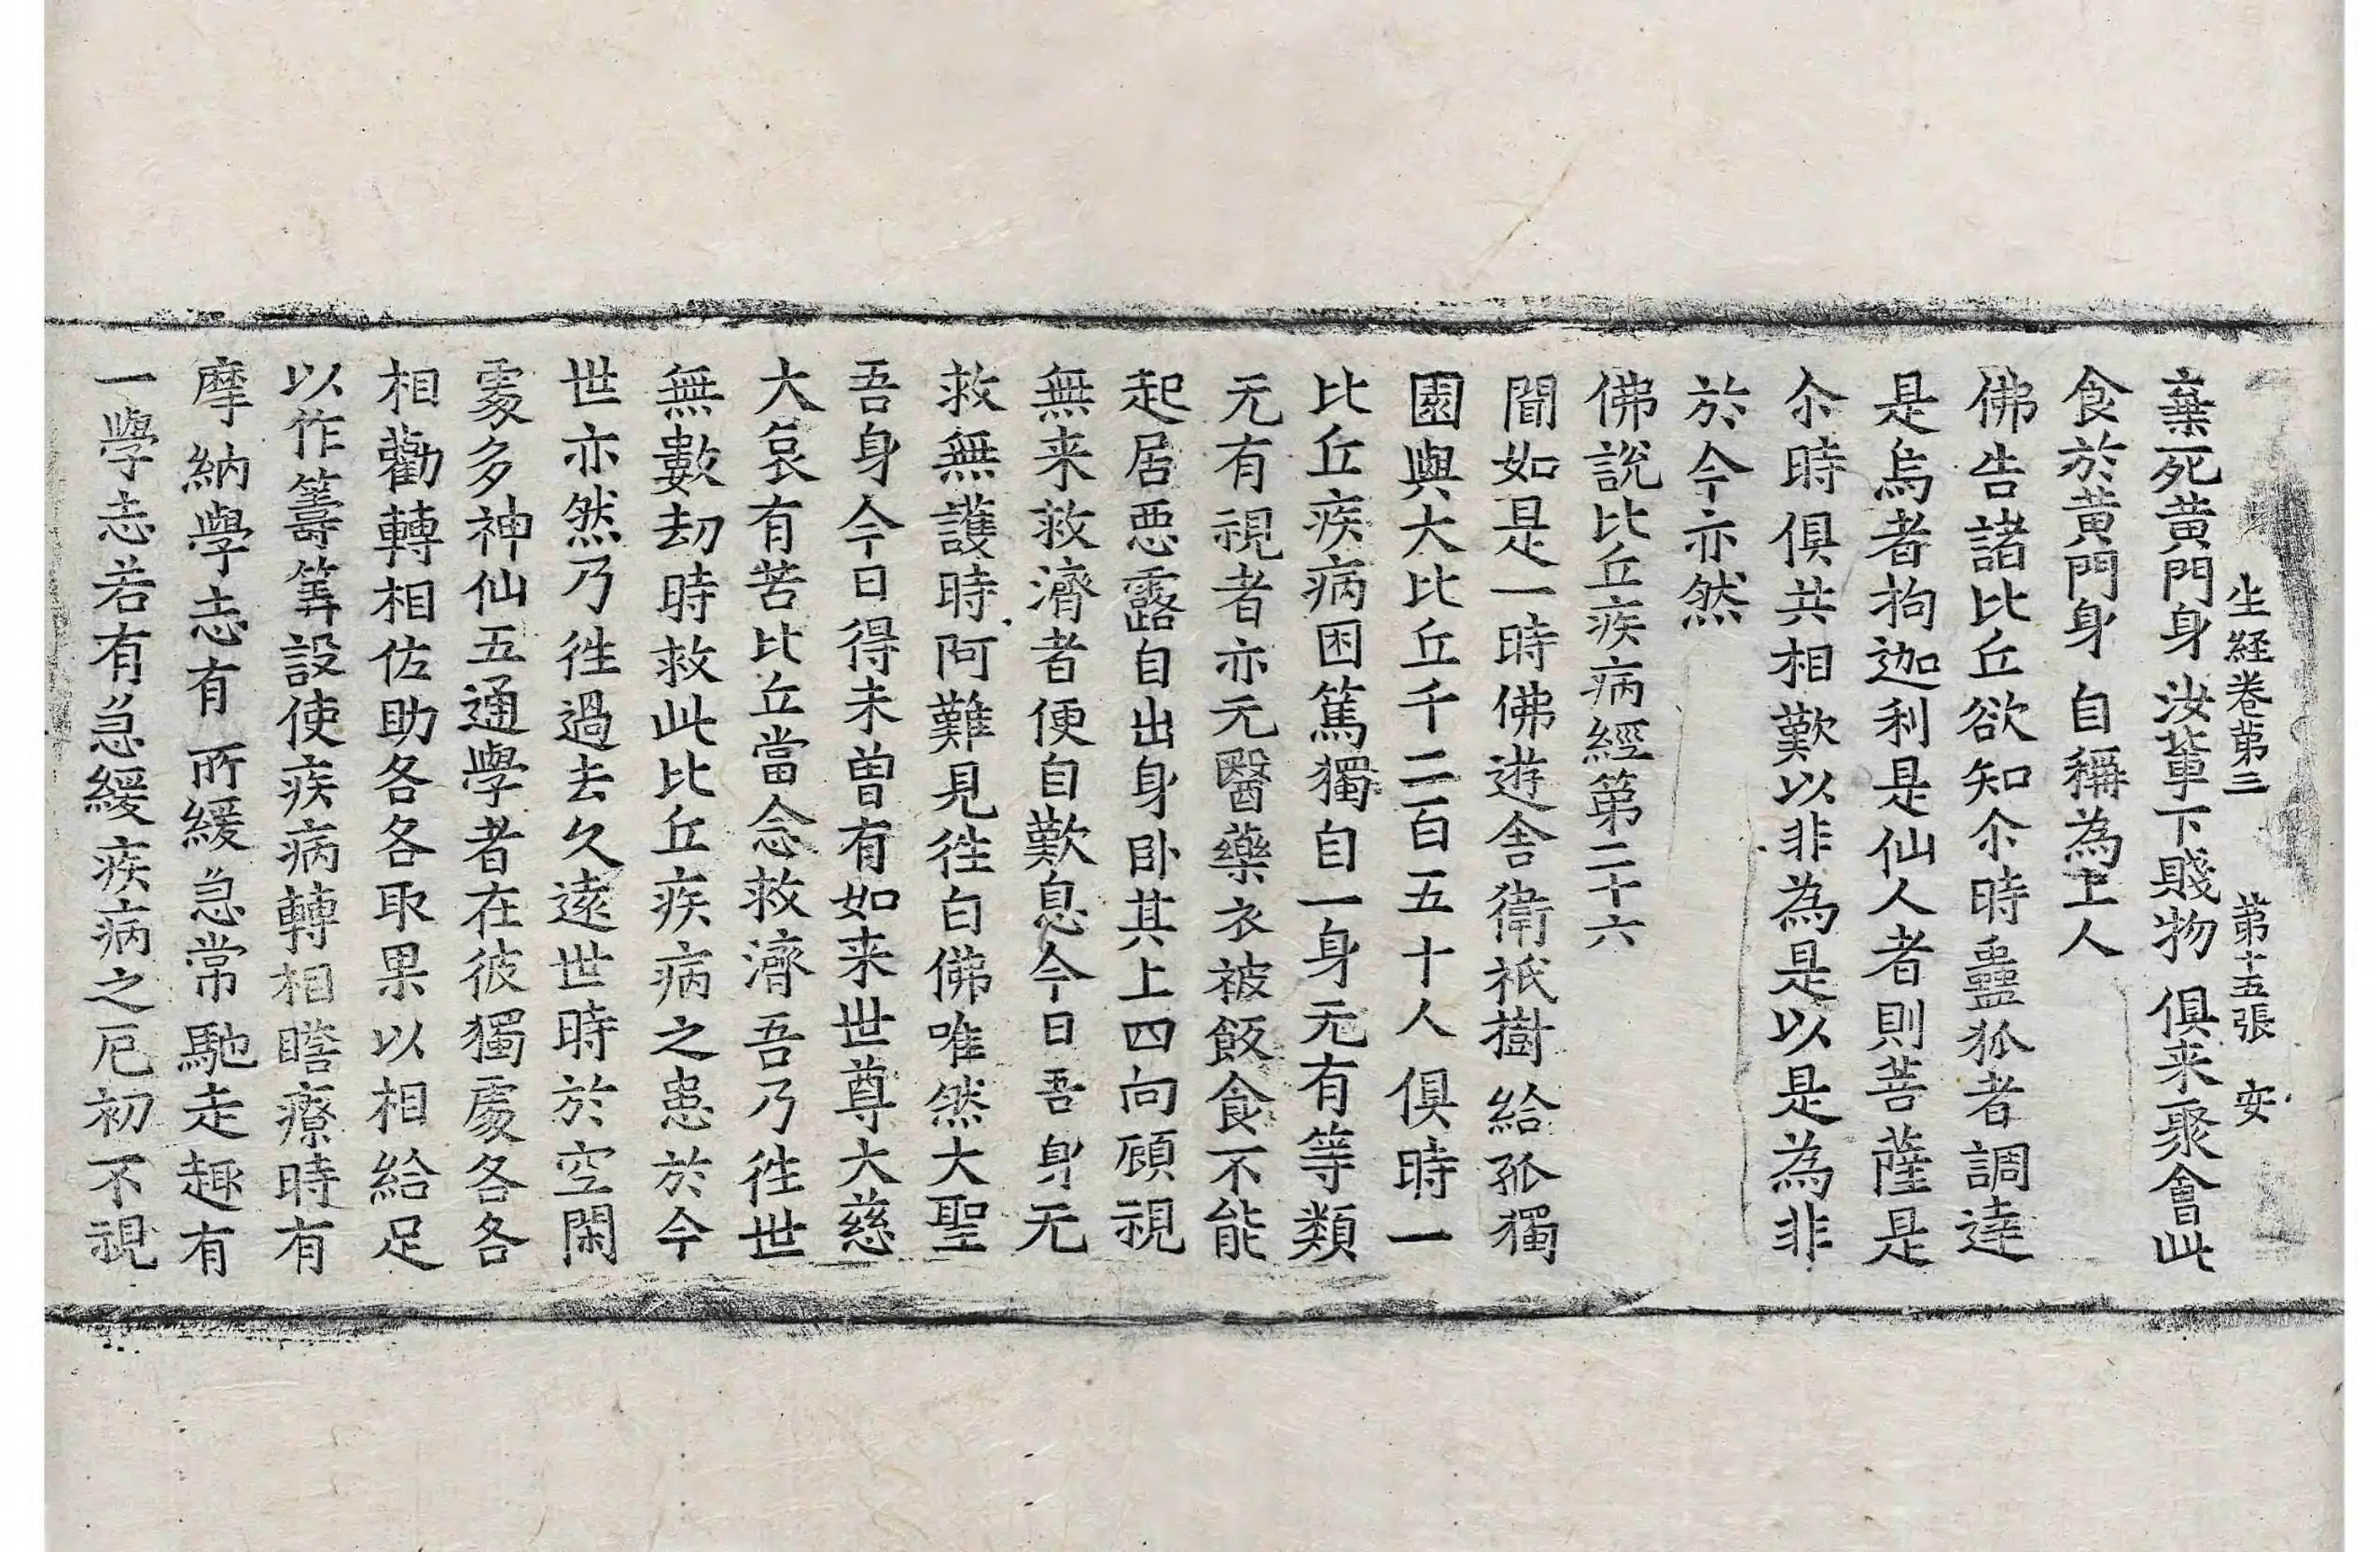 生経卷第三 第十五張 安
棄死黃門身 汝輩下賤物 俱来聚會此
食於黃門身 自稱為上人
佛告諸比丘欲知尒時蠱狐者調達
是烏者拘迦利是仙人者則菩薩是
尒時俱共相歎以非為是以是為非
於今亦然
佛說比丘疾病經第二十六
聞如是一時佛遊舍衛祇樹給孤獨
園與大比丘千二百五十人俱時一
比丘疾病困篤獨自一身无有等類
无有視者亦无醫藥衣被飯食不能
起居惡露自出身卧其上四向顧視
無来救濟者便自歎息今日吾身无
救無護時阿難見往白佛唯然大聖
吾身今日得未曾有如来世尊大慈
大哀有苦比丘當念救濟吾乃往世
無數劫時救此比丘疾病之患於今
世亦然乃往過去久遠世時於空閑
處多神仙五通學者在彼獨處各各
相勸轉相佐助各各取果以相給足
以作籌筭設使疾病轉相瞻療時有
摩納學志有所緩急常馳走趣有
一學志若有急緩疾病之厄初不視